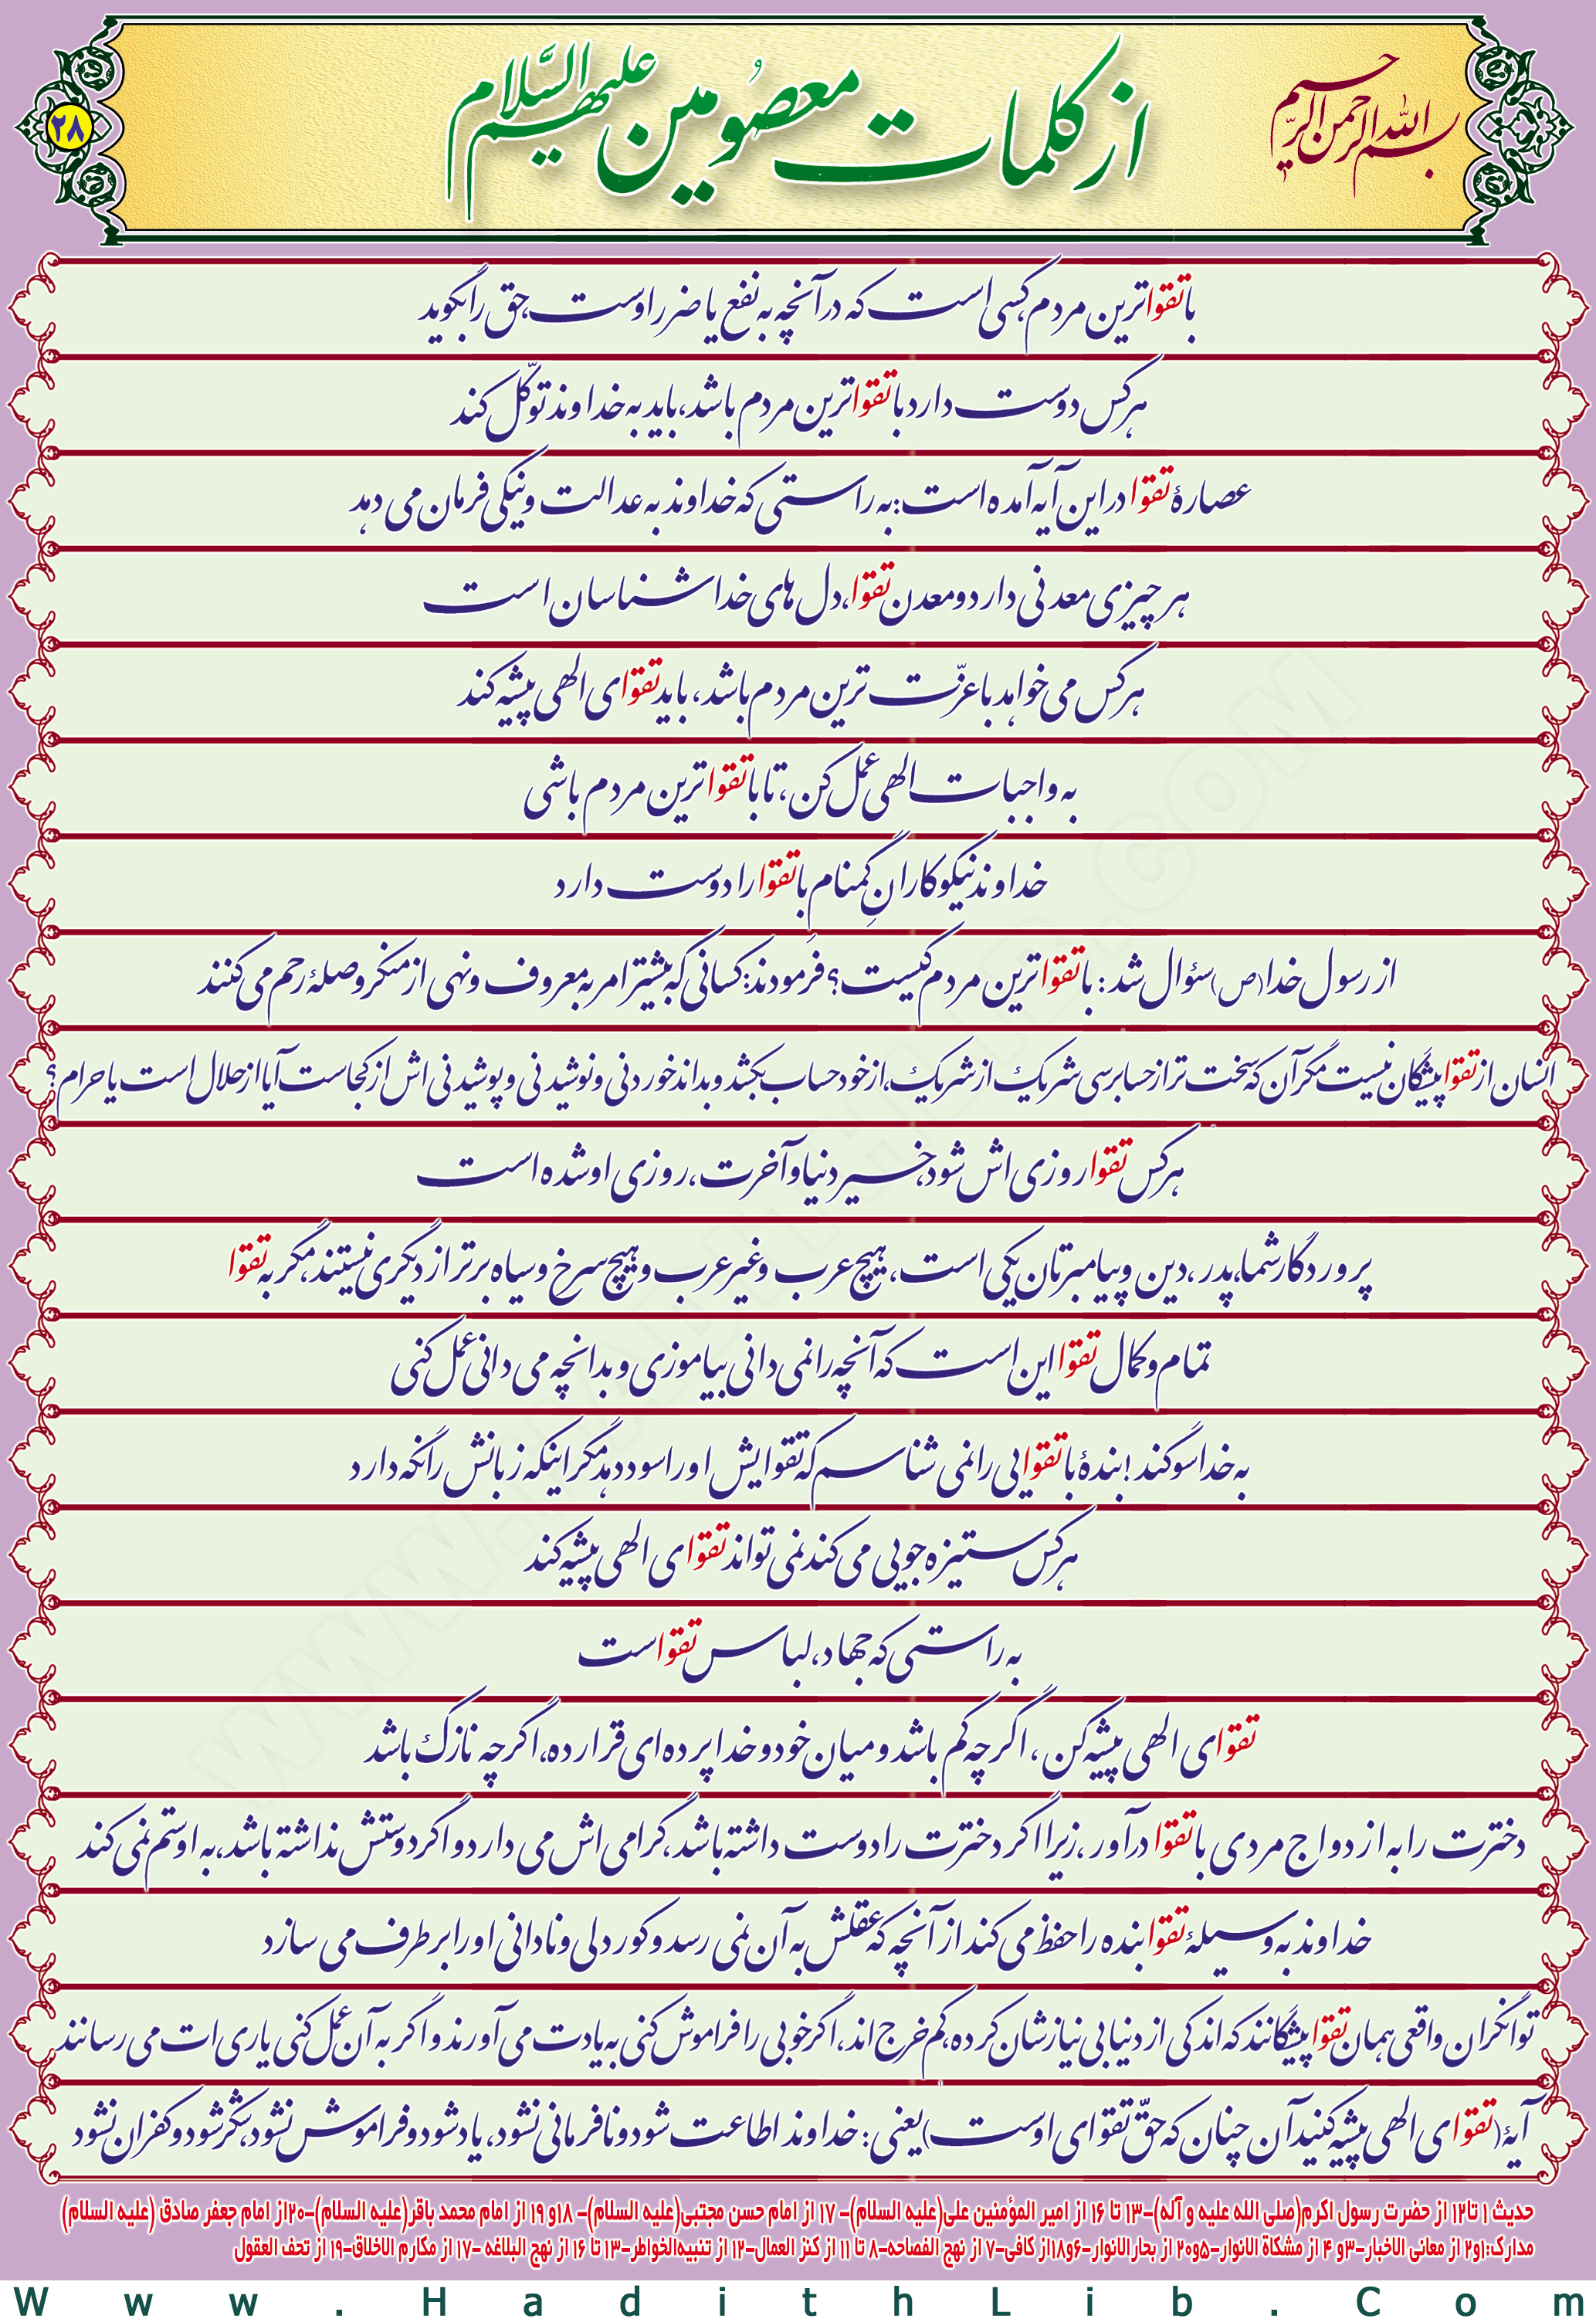 بسم الله الرحمن الرحیم
از کلمات معصومین علیهم السّلام
۲۸
با تقوا ترین مردم، کسی است که در آنچه به نفع یا ضرر اوست، حق را بگوید
هر کس دوست دارد با تقوا ترین مردم باشد، باید به خداوند توکّل کند
عصارۀ تقوا در این آیه آمده است: به راستی که خداوند به عدالت و نیکی فرمان می دهد
هر چیزی معدنی دارد و معدن تقوا، دل های خدا شناسان است
هر کس می خواهد با عزّت ترین مردم باشد، باید تقوای الهی پیشه کند
به واجبات الهی عمل کن، تا با تقوا ترین مردم باشی
خداوند نیکوکارانِ گمنام با تقوا را دوست دارد
از رسول خدا(ص) سؤال شد: با تقوا ترین مردم کیست؟ فرمودند: کسانی که بیشتر امر به معروف و نهی از منکر و صلۀ رحم می کنند
انسان از تقوا پیشگان نیست مگر آن که سخت تر از حسابرسی شریک از شریک، از خود حساب بکشد و بداند خوردنی و نوشیدنی و پوشیدنی اش از کجاست آیا از حلال است یا حرام؟
هر کس تقوا روزی اش شود، خیر دنیا و آخرت، روزی او شده است
پروردگار شما، پدر، دین و پیامبرتان یکی است، هیچ عرب و غیر عرب و هیچ سرخ و سیاه برتر از دیگری نیستند، مگر به تقوا
تمام و کمال تقوا این است که آنچه را نمی دانی بیاموزی و بدانچه می دانی عمل کنی
به خدا سوگند! بندۀ با تقوایی را نمی شناسم که تقوایش او را سود دهد مگر اینکه زبانش را نگه دارد
هر کس ستیزه جویی می کند نمی تواند تقوای الهی پیشه کند
به راستی که جهاد، لباس تقواست
تقوای الهی پیشه کن، اگر چه کم باشد و میان خود و خدا پرده ای قرار ده، اگر چه نازک باشد
دخترت را به ازدواج مردی با تقوا درآور، زیرا اگر دخترت را دوست داشته باشد، گرامی اش می دارد و اگر دوستش نداشته باشد، به او ستم نمی کند
خداوند به وسیلۀ تقوا بنده را حفظ می کند از آنچه که عقلش به آن نمی رسد و کوردلی و نادانی او را برطرف می سازد
توانگران واقعی همان تقوا پیشگانند که اندکی از دنیا بی نیازشان کرده، کم خرج اند، اگر خوبی را فراموش کنی به یادت می آورند و اگر به آن عمل کنی یاری ات می رسانند
آیۀ (تقوای الهی پیشه کنید آن چنان که حقّ تقوای اوست) یعنی: خداوند اطاعت شود و نافرمانی نشود، یاد شود و فراموش نشود، شکر شود و کفران نشود
حدیث ۱ تا۱۲ از حضرت رسول اکرم(صلی الله علیه و آله)–۱۳ تا ۱۶ از امیر المؤمنین علی(علیه السلام)– ۱۷ از امام حسن مجتبی(علیه السلام)– ۱۸و ۱۹ از امام محمد باقر(علیه السلام)–۲۰از امام جعفر صادق (علیه السلام)
مدارک:۱و۲ از معانی الاخبار–۳و ۴ از مشکاة الانوار–۵و۲۰ از بحارالانوار–۶و۱۸از کافی–۷ از نهج الفصاحه–۸ تا ۱۱ از کنز العمال–۱۲ از تنبیه‌الخواطر–۱۳ تا ۱۶ از نهج البلاغه –۱۷ از مکارم الاخلاق–۱۹ از تحف العقول
Www.HadithLib.Com